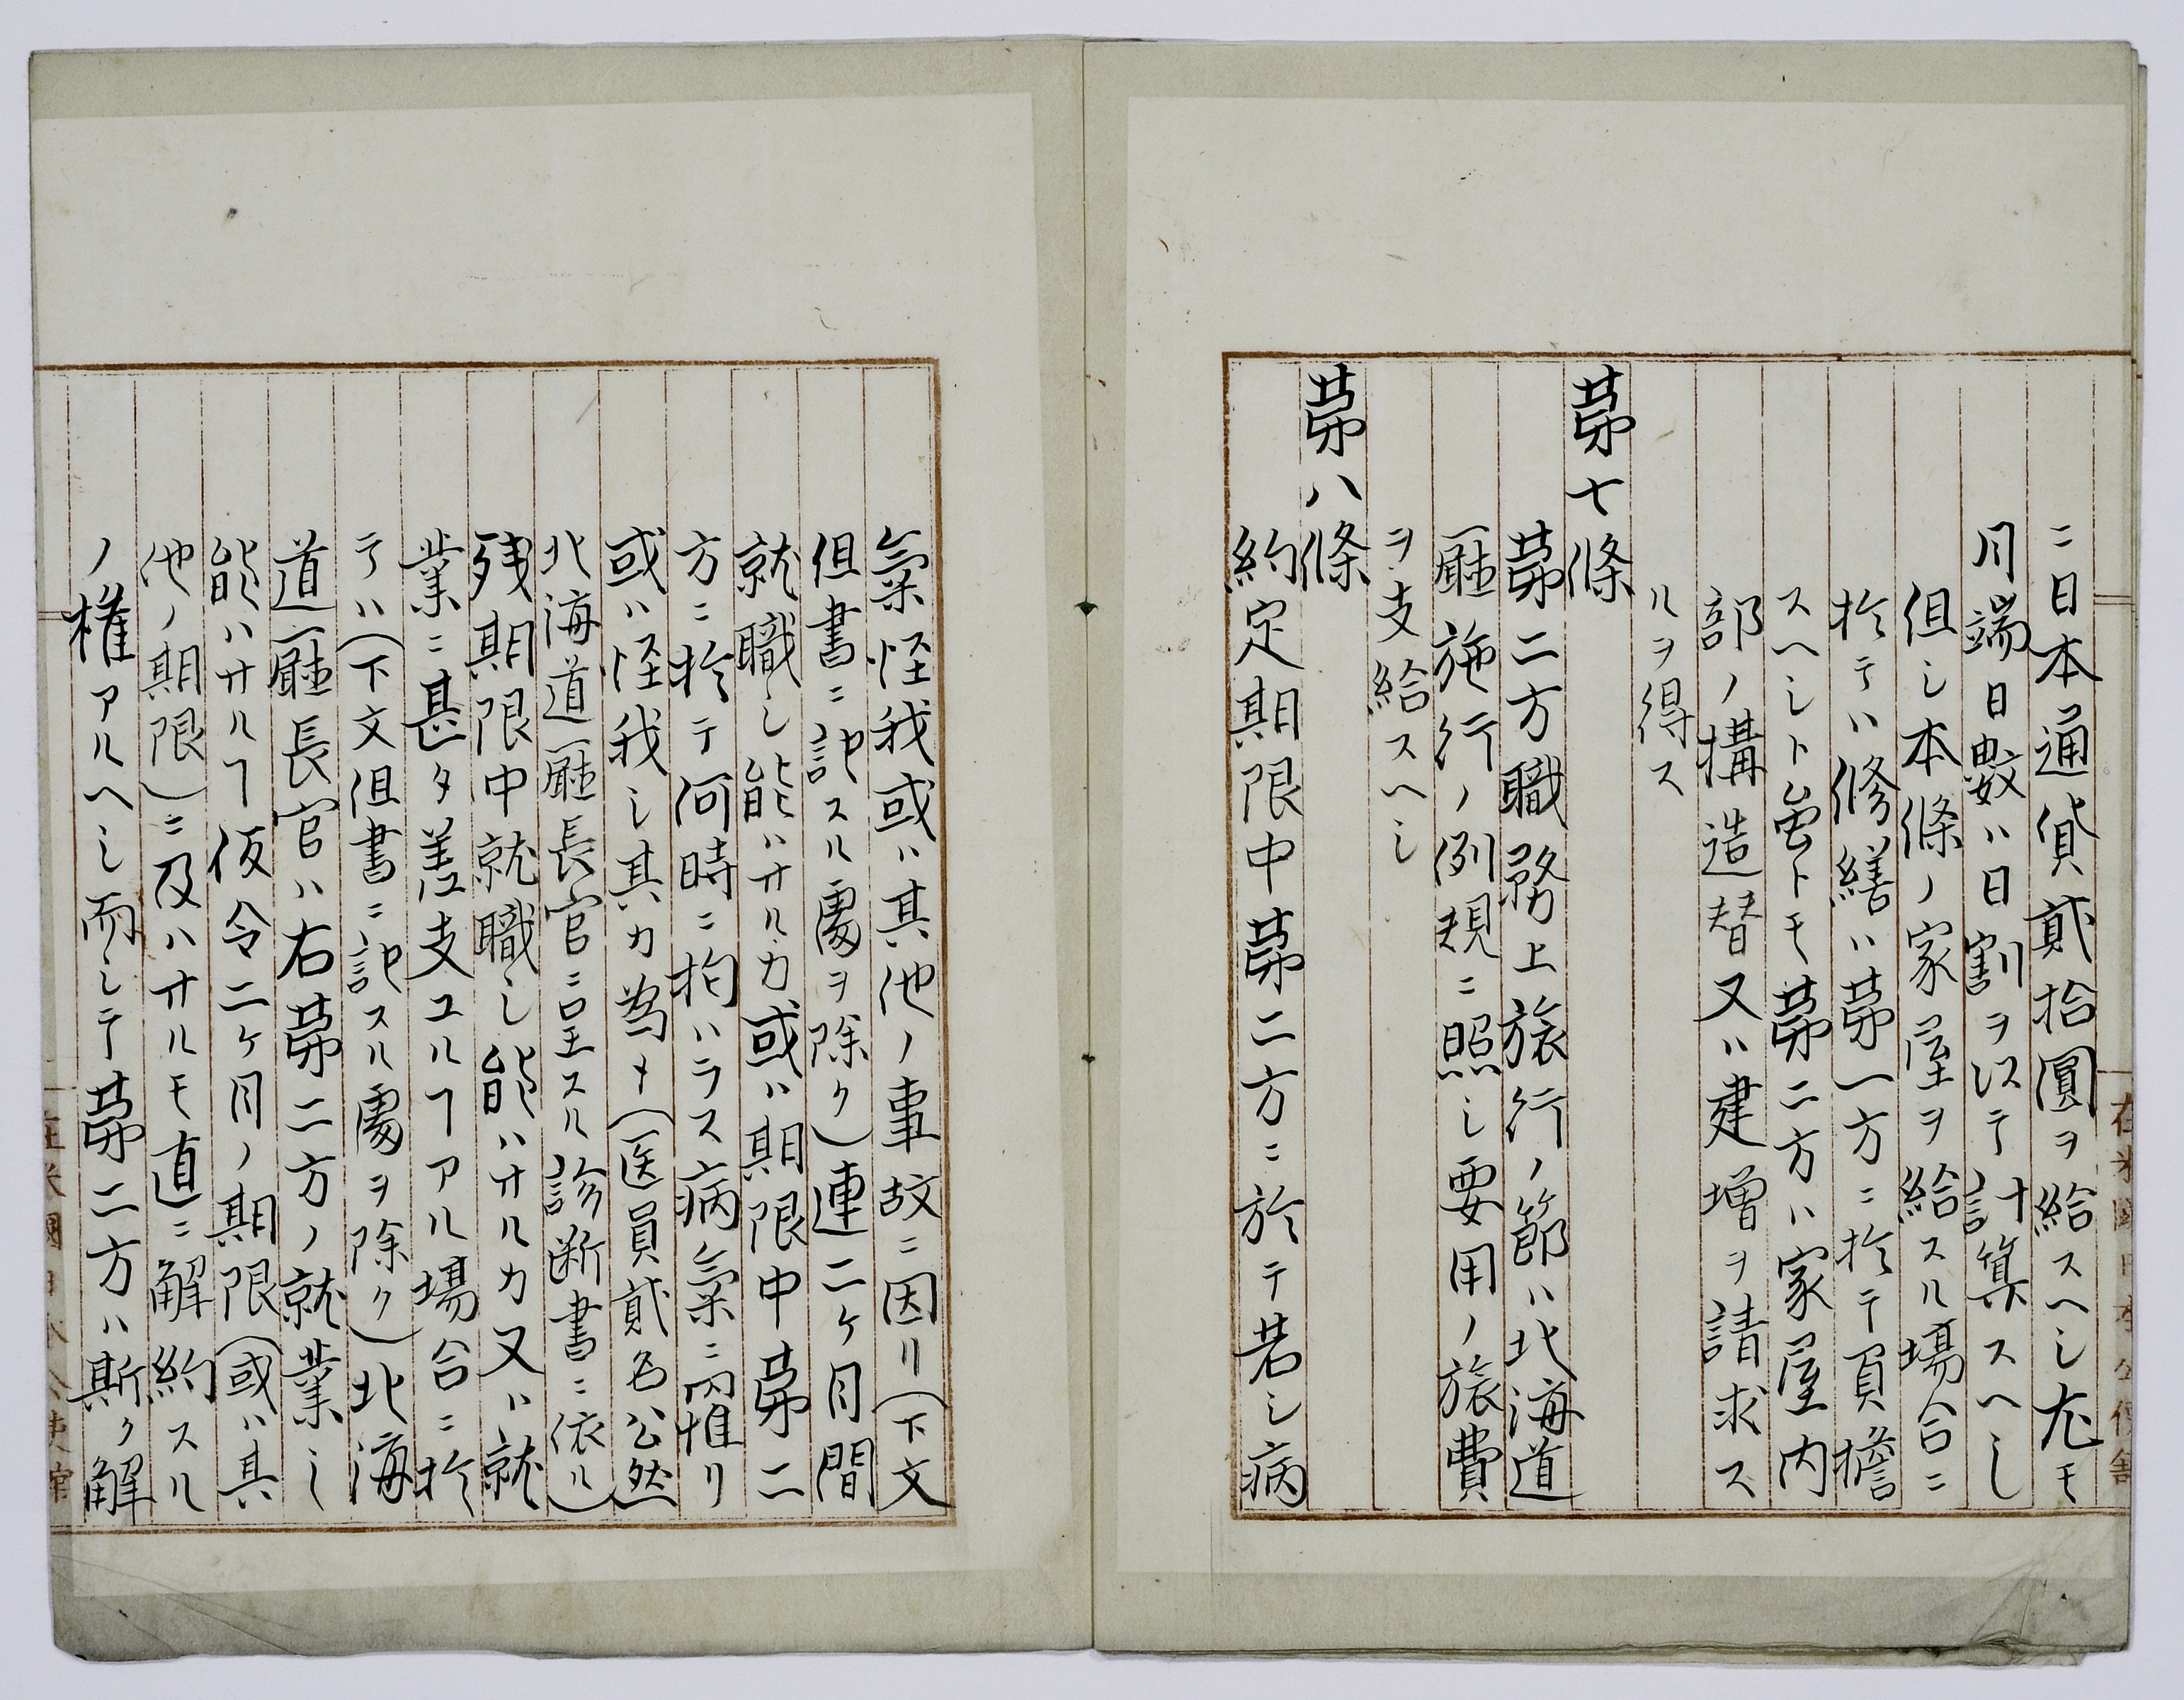 ニ日本通貨貳拾圓ヲ給スヘシ尤モ
月端日数ハ日割ヲ以テ計算スヘシ
但シ本條ノ家屋ヲ給スル場合ニ
於テハ修繕ハ第一方ニ於テ負擔
スヘシト雖トモ第二方ハ家屋内
部ノ構造替又ハ建増ヲ請求ス
ルヲ得ス
第七條
第二方職務上旅行ノ節ハ北海道
廳施行ノ例規ニ照シ要用ノ旅費
ヲ支給スヘシ
第八條
約定期限中第二方ニ於テ若シ病
氣怪我或ハ其他ノ事故ニ因リ(下文
但書ニ記スル處ヲ除ク)連二ヶ月間
就職シ能ハサルカ或ハ期限中第二
方ニ於テ何時ニ拘ハラス病氣ニ罹リ
或ハ怪我シ其カ為メ(医員貳名公然
北海道廳長官ニ呈スル診断書ニ依ル)
残期限中就職シ能ハサルカ又ハ就
業ニ甚タ差支ユルヿアル場合ニ於
テハ(下文但書ニ記スル處ヲ除ク)北海
道廳長官ハ右第二方ノ就業シ
能ハサルヿ仮令二ヶ月ノ期限(或ハ其
他ノ期限)ニ及ハサルモ直ニ解約スル
ノ権アルヘシ而シテ第二方ハ斯ク解
在米國日本公使館